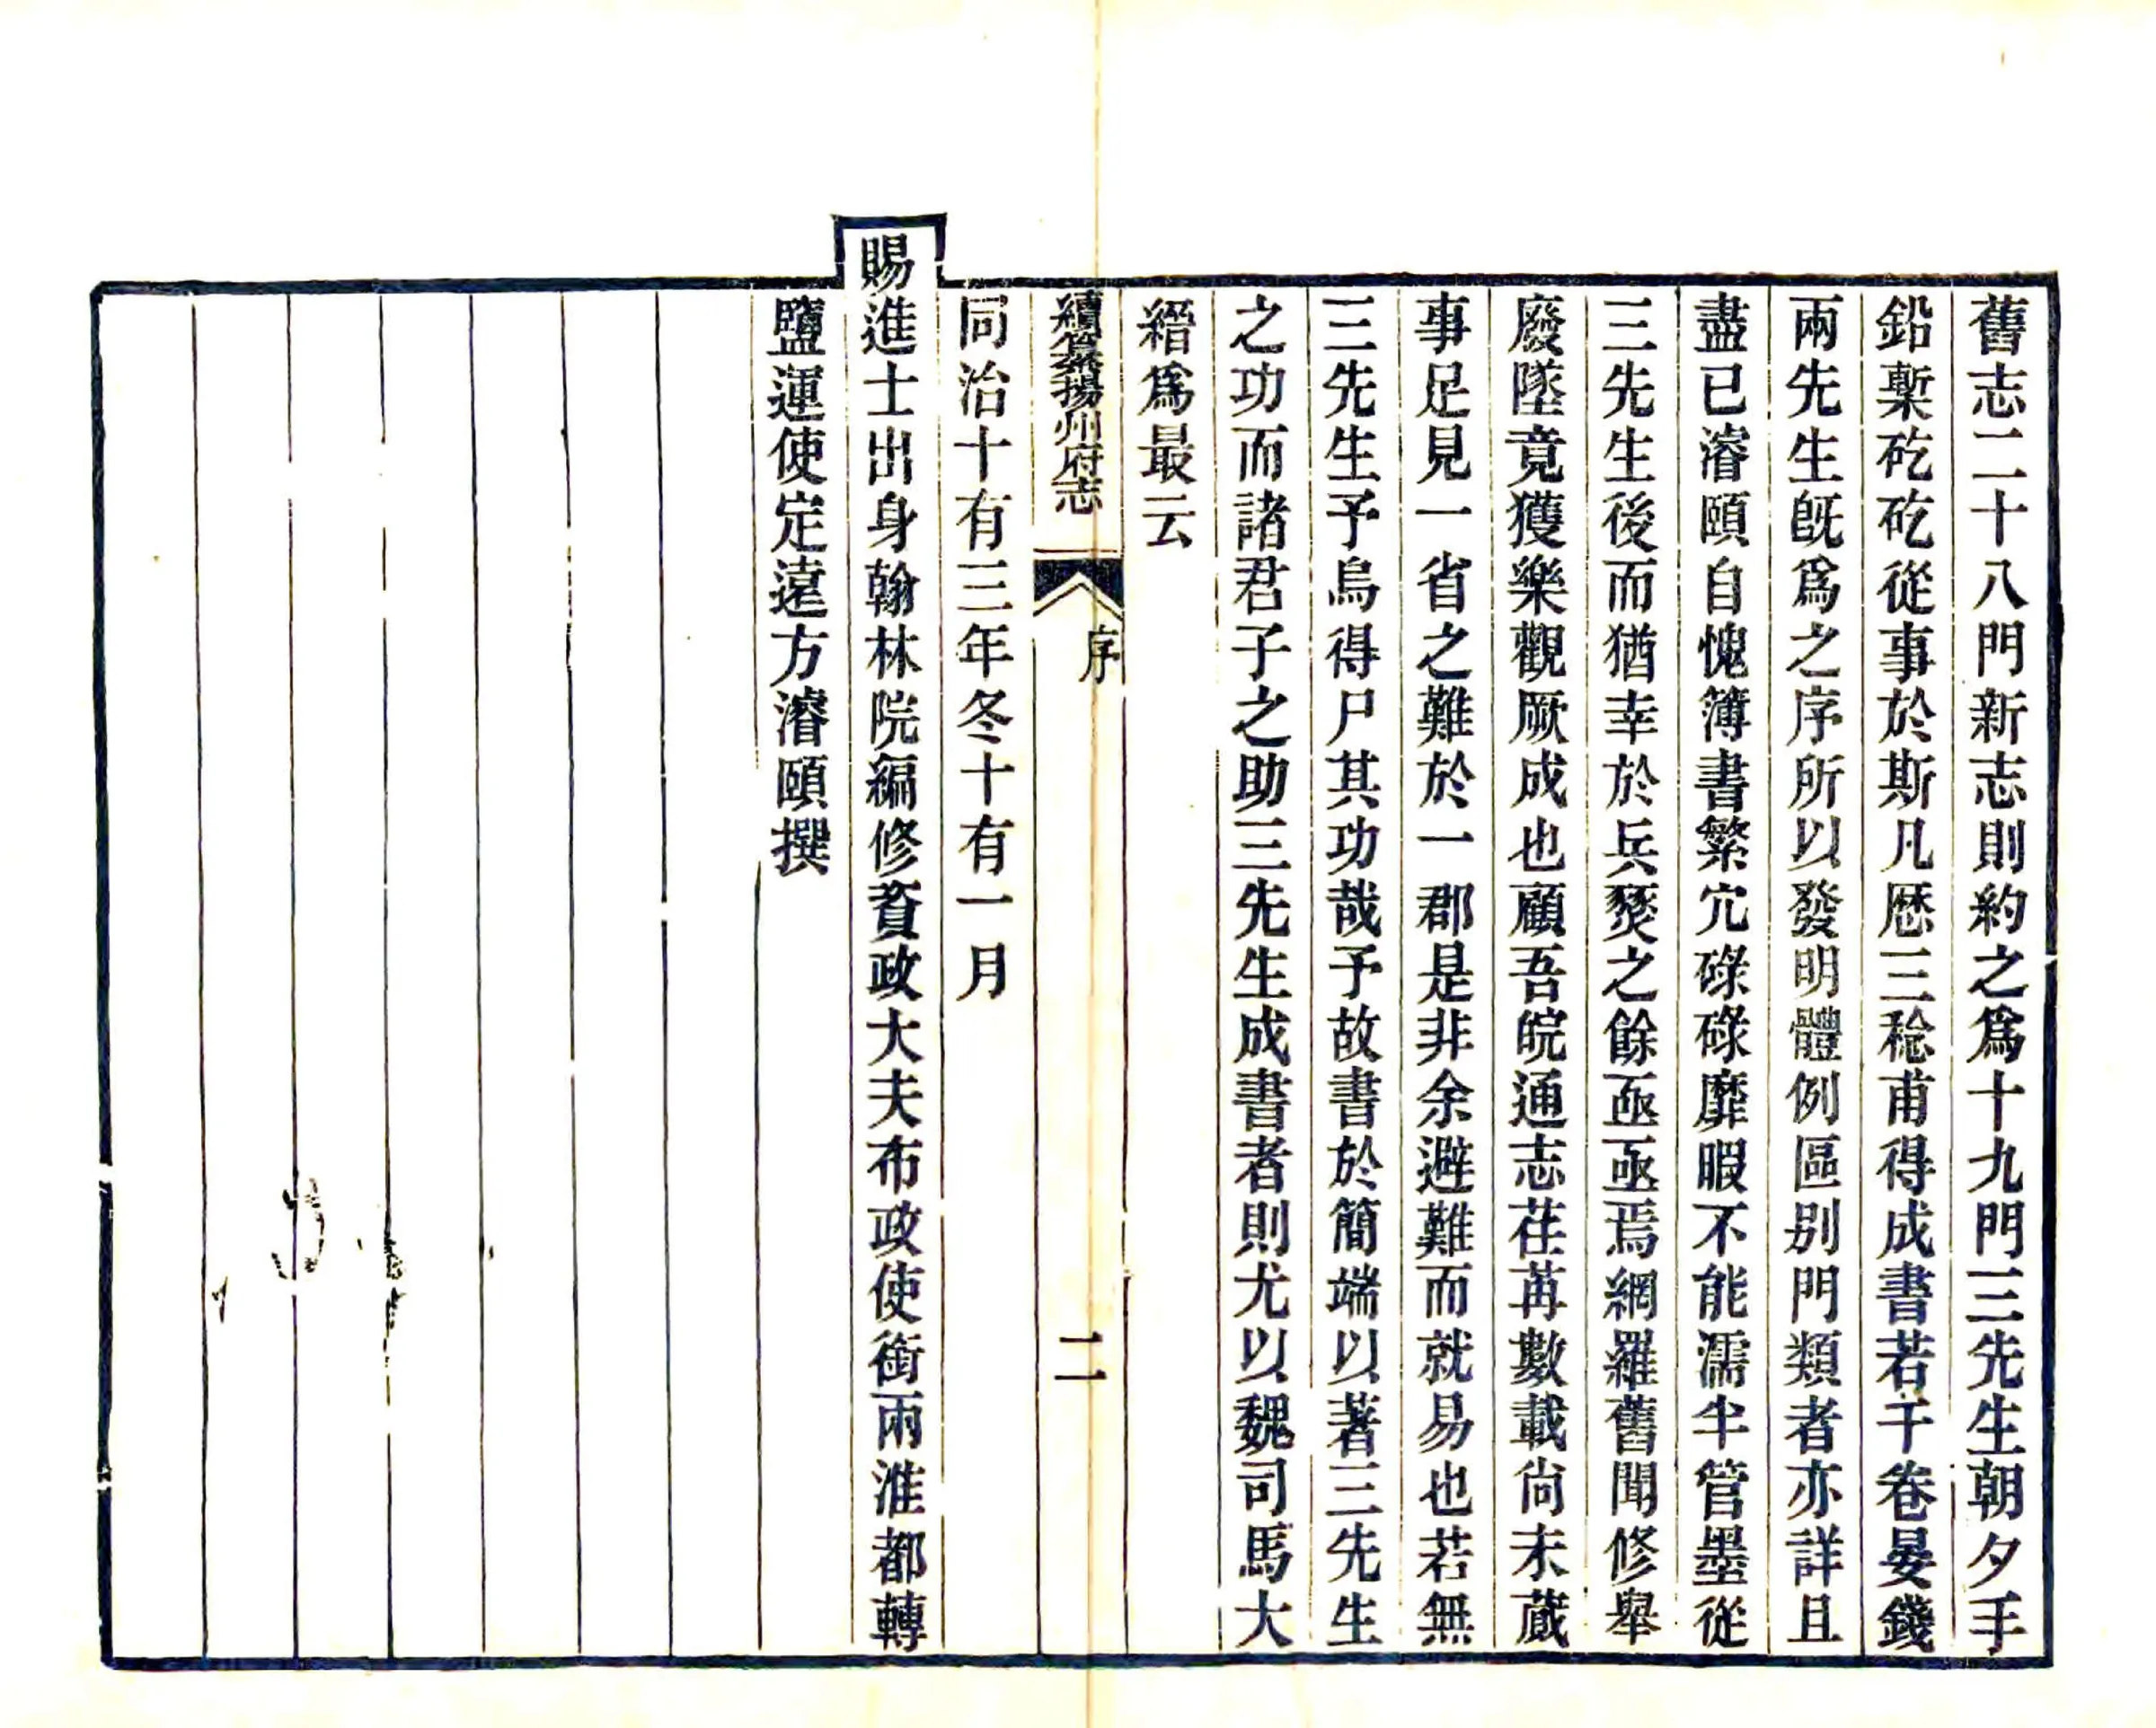 舊志二十八門新志則約之爲十九門三先生朝夕手
鉛槧矻矻從事於斯凡厯三稔甫得成書若干卷晏錢
兩先生旣爲之序所以發明體例區别門類者亦詳且
盡已濬頤自愧簿書繁宂碌碌靡暇不能濡半管墨從
三先生後而猶幸於兵燹之餘亟亟焉網羅舊聞修舉
廢墜竟獲樂觀厥成也顧吾皖通志荏苒數載尚未蕆
事足見一省之難於一郡是非余避難而就易也若無
三先生予烏得尸其功哉予故書於簡端以著三先生
之功而諸君子之助三先生成書者則尤以魏司馬大
縉爲最云
續纂揚州府志 序 二
同治十有三年冬十有一月
賜進士出身翰林院編修資政大夫布政使銜兩淮都轉
鹽運使定遠方濬頤撰